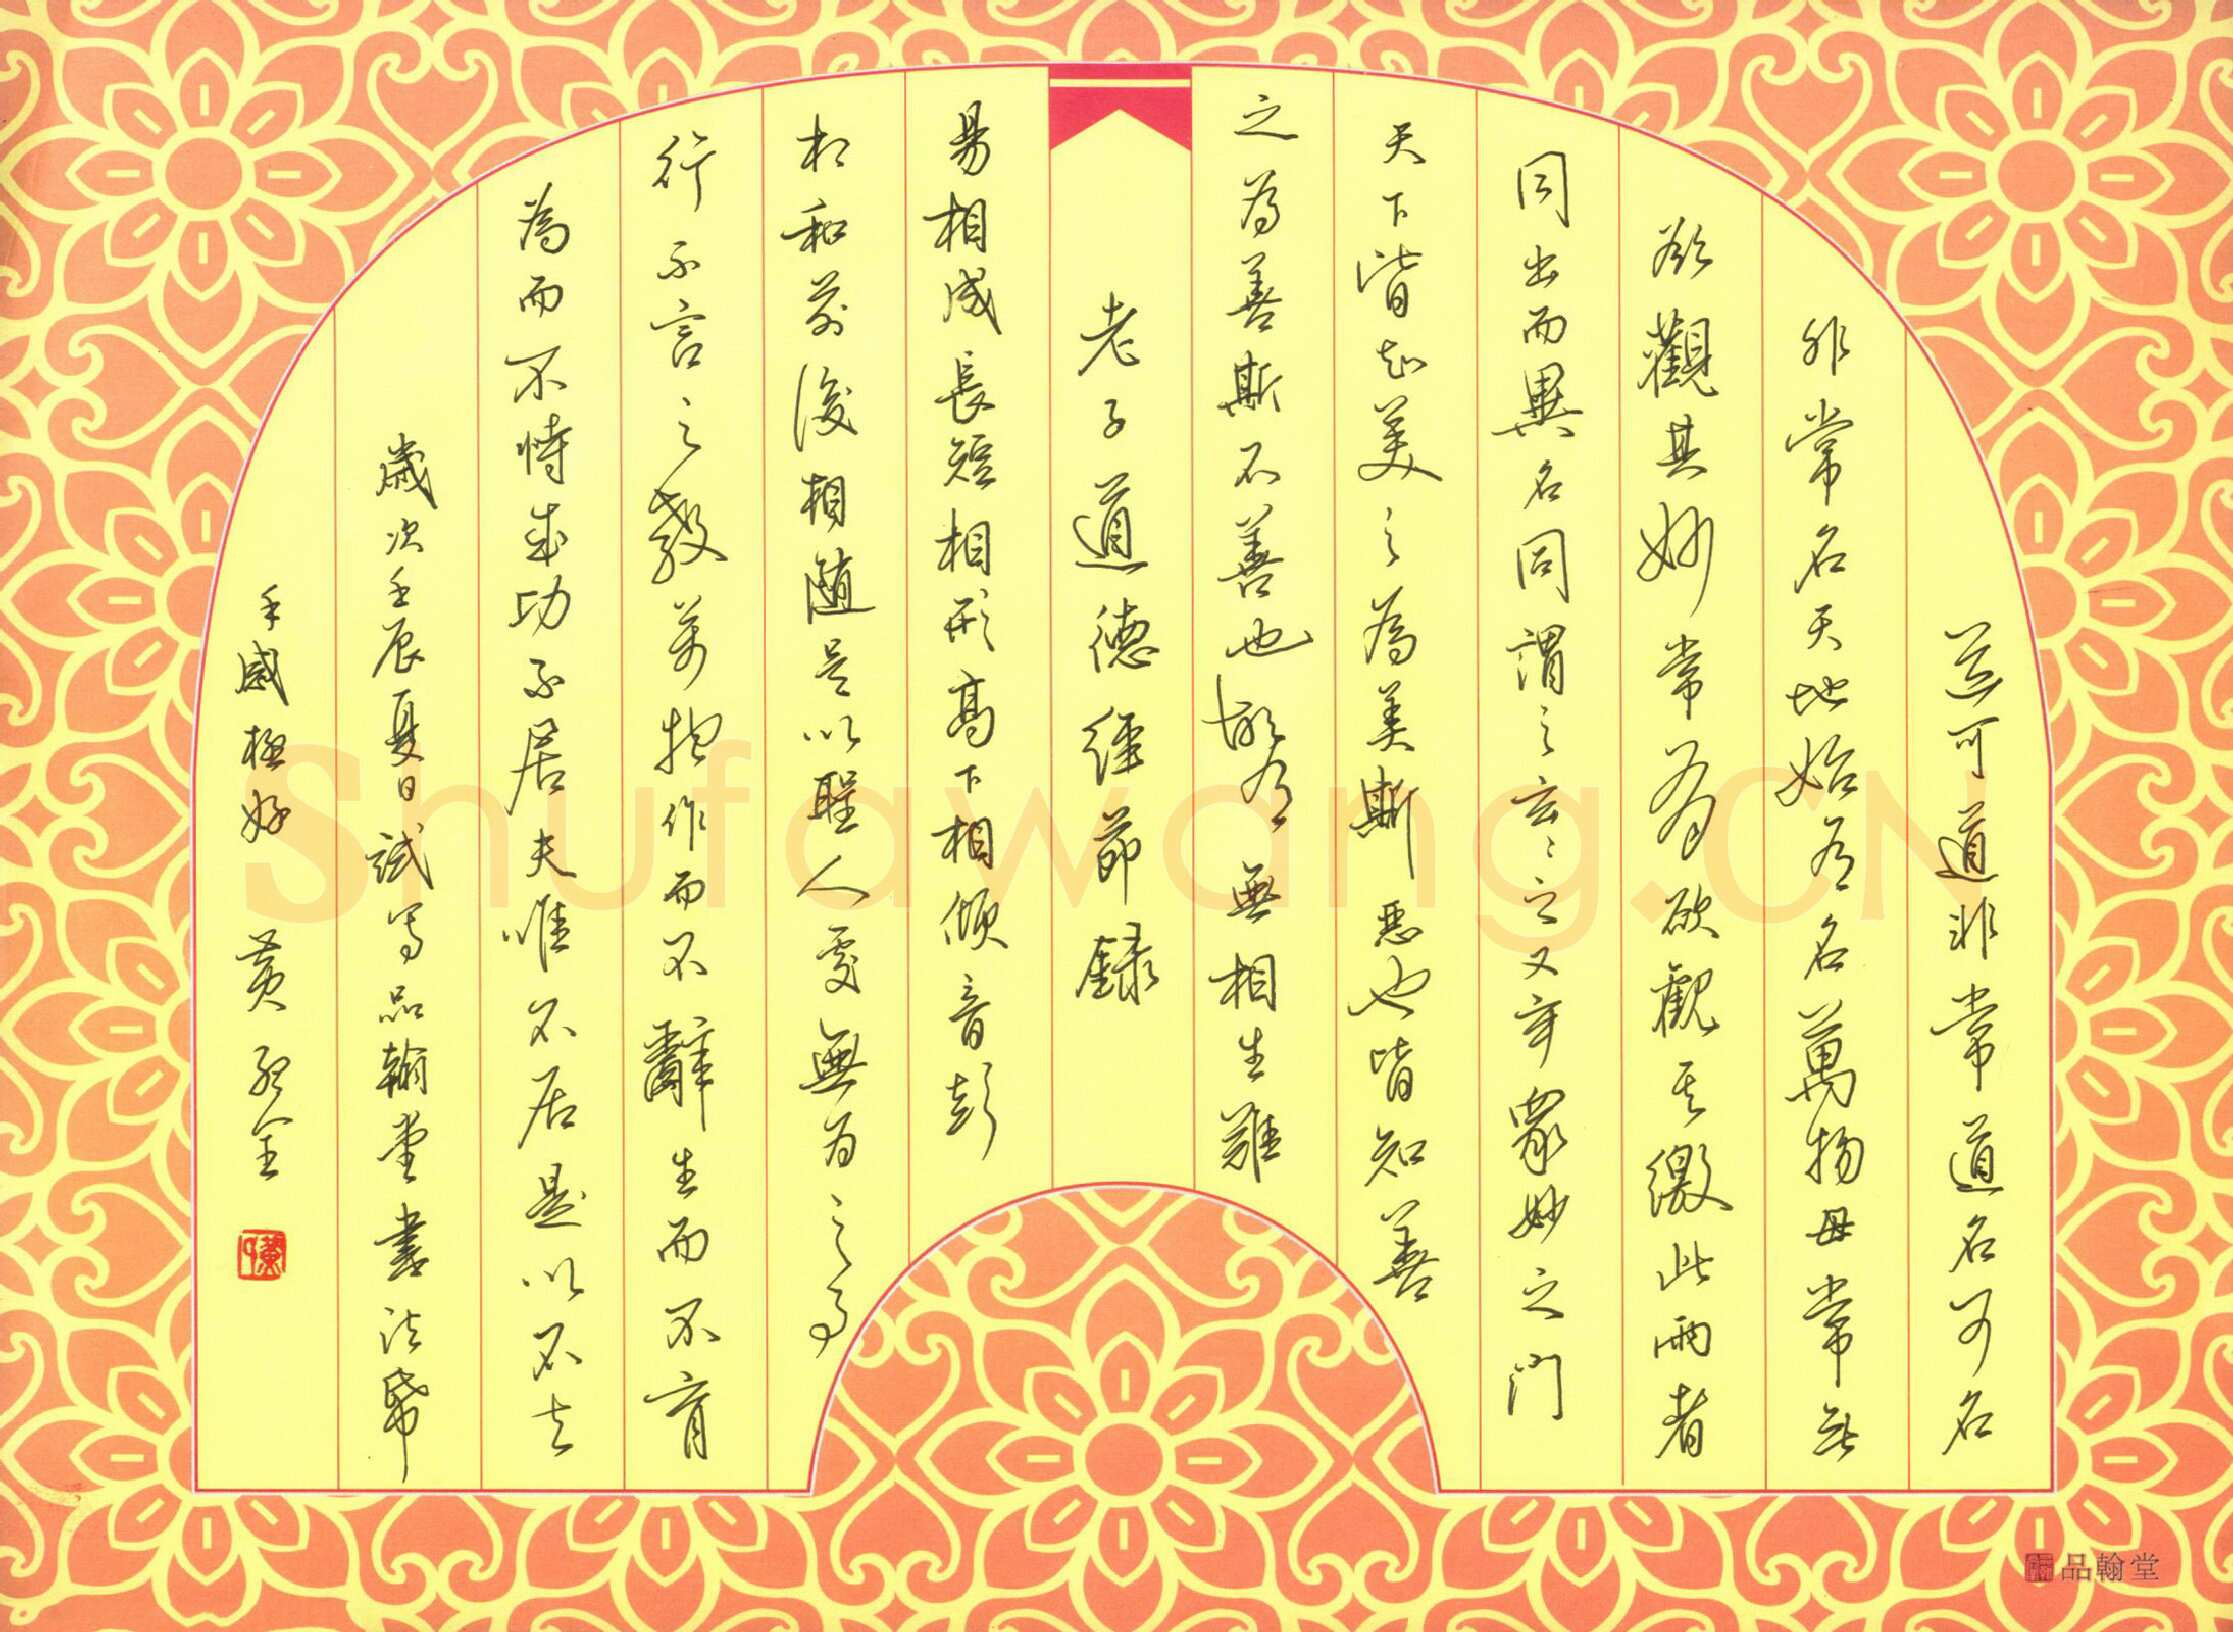 道可道非常道名可名
非常名天地始有名萬物母常無
欲觀其妙常有欲觀其徼此兩者
同出而異名同謂之玄々之又玄眾妙之門
天下皆知美之為美斯惡也皆知善
之為善斯不善也故有無相生難
老子道德經節錄
易相成長短相形高下相傾音聲
相和前後相隨是以聖人處無為之事
行不言之教萬物作而不辭生而不有
為而不恃成功不居夫唯不居是以不去
歲次壬辰夏日試寫品翰堂書法帋
手感極好 黃
品翰堂
Shufawang.CN